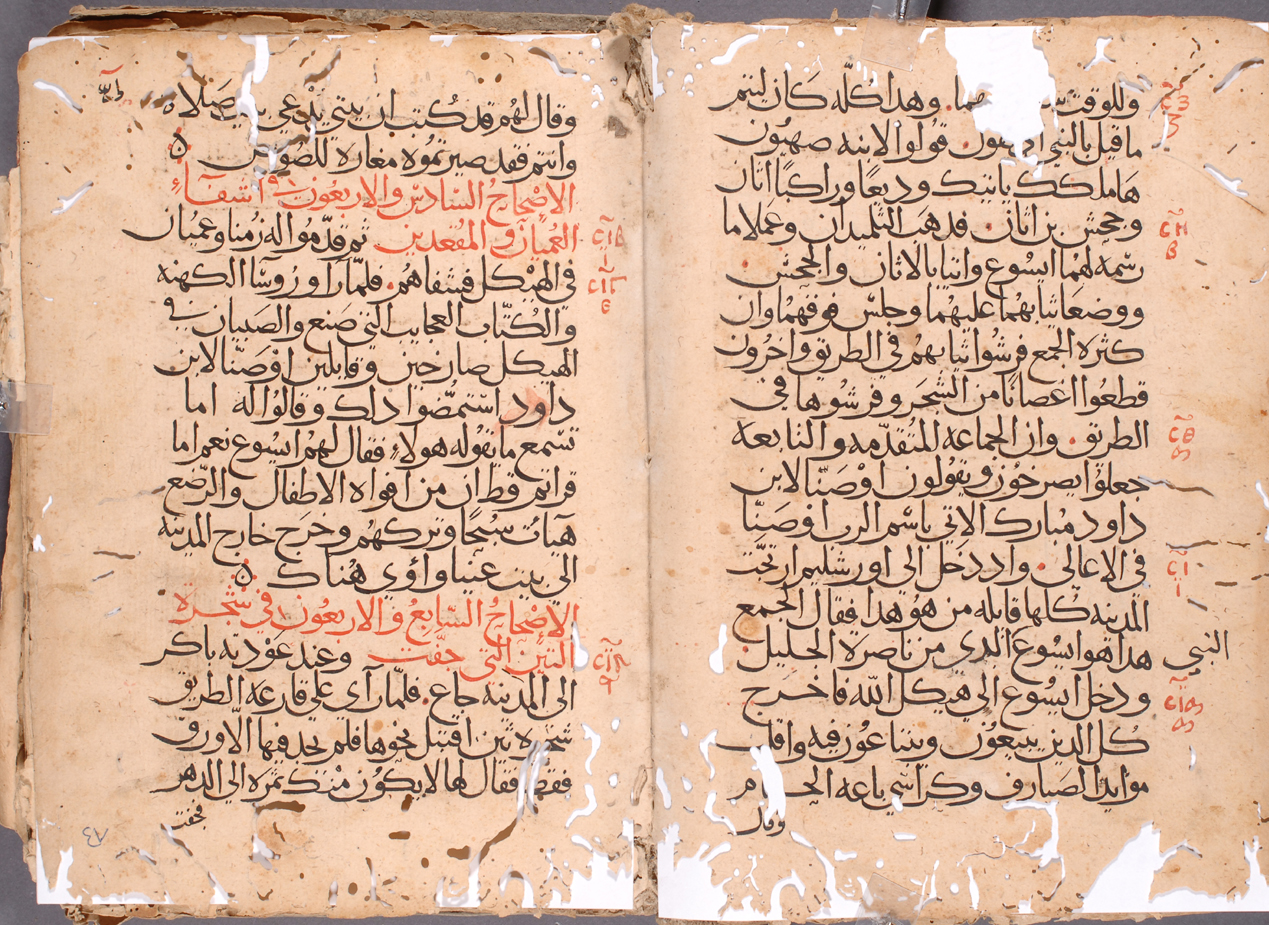 وللوقت هما. وهدا كله كان ليتم
ما قيل بالنبي القايل. قولوا لابنه صهيون
هاملكك ياتيك وديعًا وراكبًا اتان
وجحش بن اتان. فدهب التلميدان وعملا ما
رسمه لهما ايسوع واتيا بالاتان والجحش
ووضعا ثيابهما عليهما وجلس فوقهما وان
كثرة الجمع فرشوا ثيابهم في الطريق واخرون
قطعوا اغصانًا من الشجر وفرشوها في
الطريق. وان الجماعه المتقدمه والتابعه
جعلوا يصرخون ويقولون اوصنا لابن
داود مبارك الاتي باسم الرب اوصنا
في الاعالي. واد دخل الي اورشليم ارتجت
المدينه كلها قايله من هو هدا فقال الجمع
هدا هو ايسوع الدي من ناصرة الجليل.
النبي
ودخل ايسوع الي هيكل الله فاخرج
كل الدين يبيعون ويبتاعون فيه واقلب
موايد الصيارف وكراسي باعه الحمام
وقال
وقال لهم قد كتب ان بيتي يدعي بيت صلاه
وانتم فقد صيرتموه مغاره للصوص ٥
الاصحاح السادس والاربعون اشفآء
العميان والمقعدين ثم قدموا له زمنا وعميان
في الهيكل فشفاهم. فلما راو روسا الكهنه
والكتاب العجايب التي صنع والصبيان في
الهيكل صارخين وقايلين اوصنا لابن
داود استمضوا داك وقالوا له اما
تسمع ما تقوله هولاء فقال لهم ايسوع نعم اما
قراتم قط ان من افواه الاطفال والرضع
هيات سبحًا وتركهم وخرج خارج المدينه
الي بيت عنيا وأوي هناك ٥
الاصحاح السابع والاربعون في شجرة
التين التي جفت وعند عودته باكر
الى المدينه جاع. فلما رآى علي قارعة الطريق
شجره تين اقتبل نحوها فلم يجد فيها الا ورق
فقط فقال لها لا يكون منك ثمره الي الدهر
فجفت